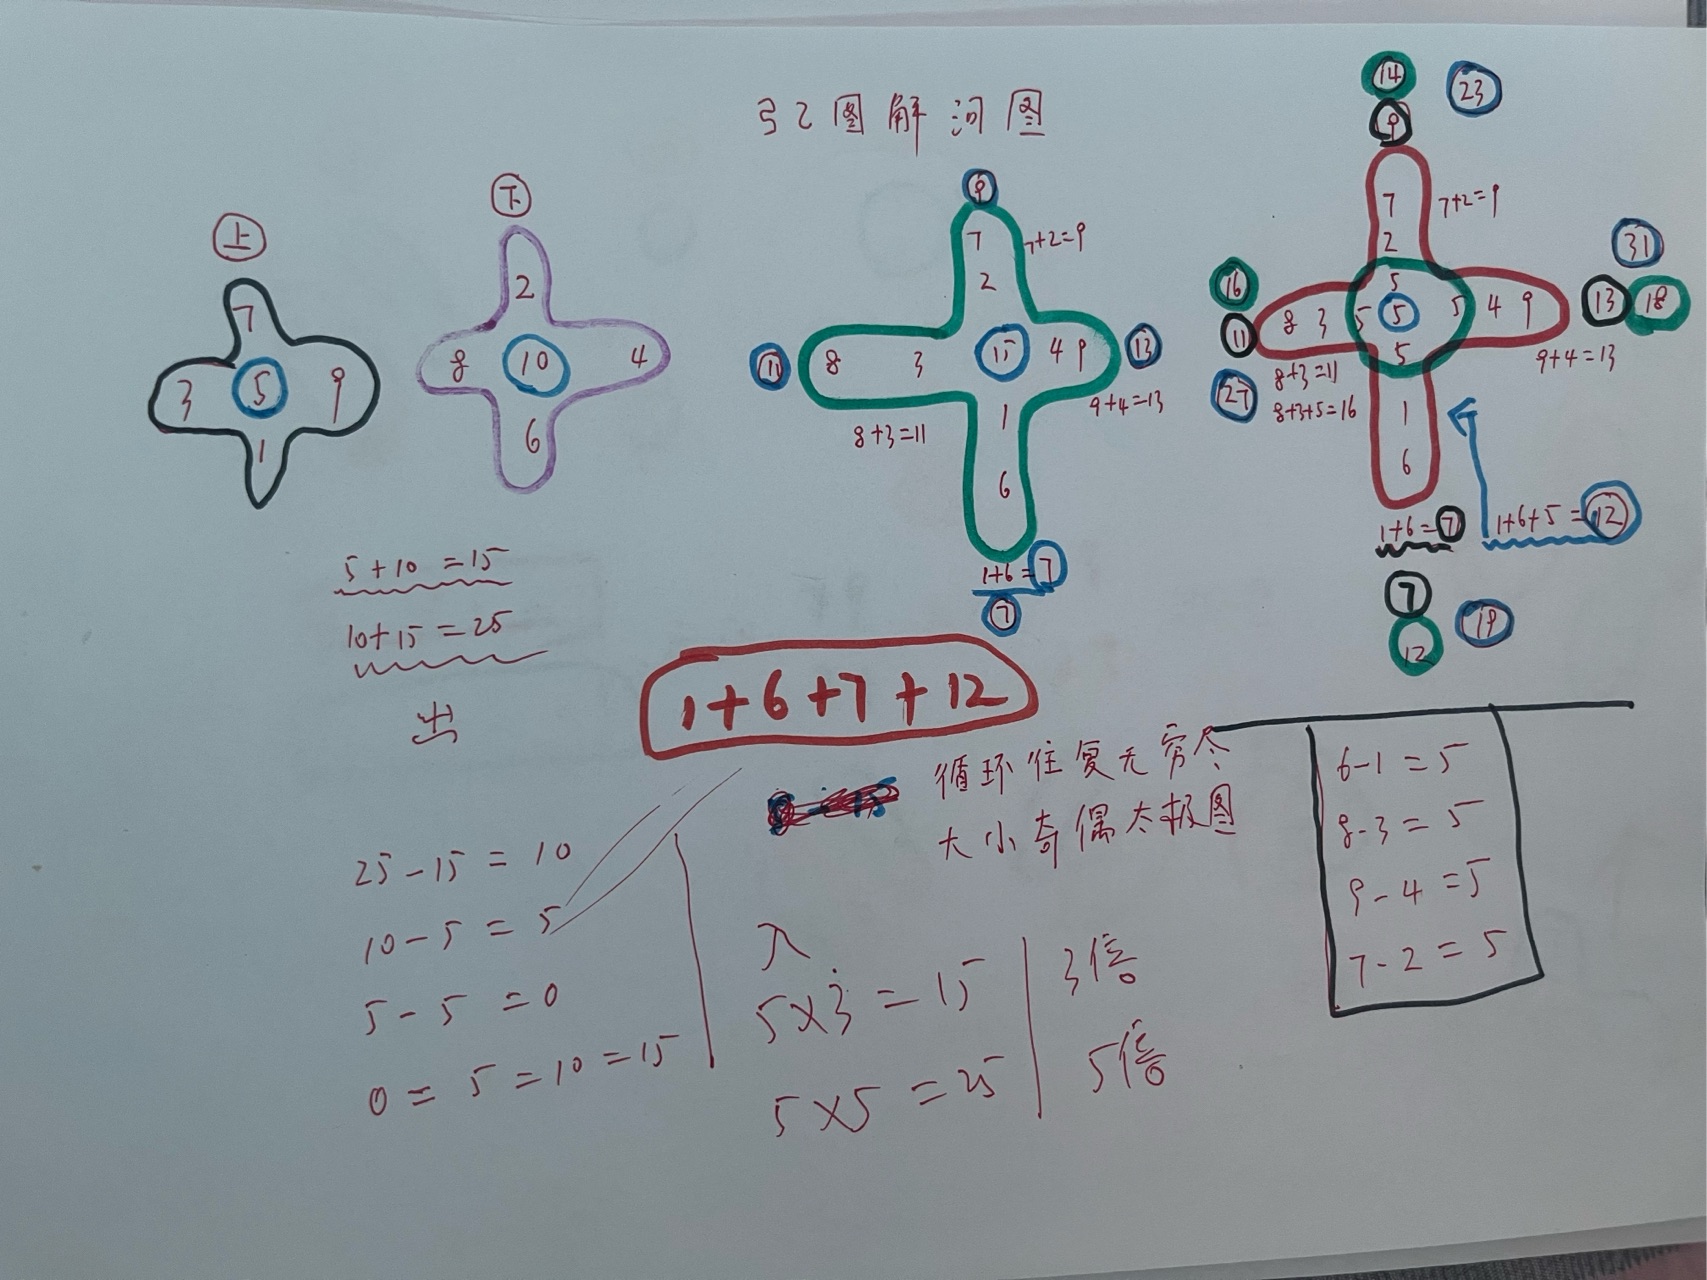 弓乙图解河图
上
7
3 5 9
1
下
2
8 10 4
6
5+10=15
10+15=25
出
9
7
7+2=9
2
11 8 3 15 4 9 13
9+4=13
8+3=11
1
6
1+6=7
7
14
23
9
7
7+2=9
2
31
16
11
8 3 5 5 5 4 9
5
5
13 18
9+4=13
8+3=11
27
8+3+5=16
1
6
1+6=7
1+6+5=12
7
19
12
1+6+7+12
循环往复无穷尽
大小奇偶太极图
25-15=10
10-5=5
5-5=0
0=5=10=15
入
5×3=15 3倍
5×5=25 5倍
6-1=5
8-3=5
9-4=5
7-2=5